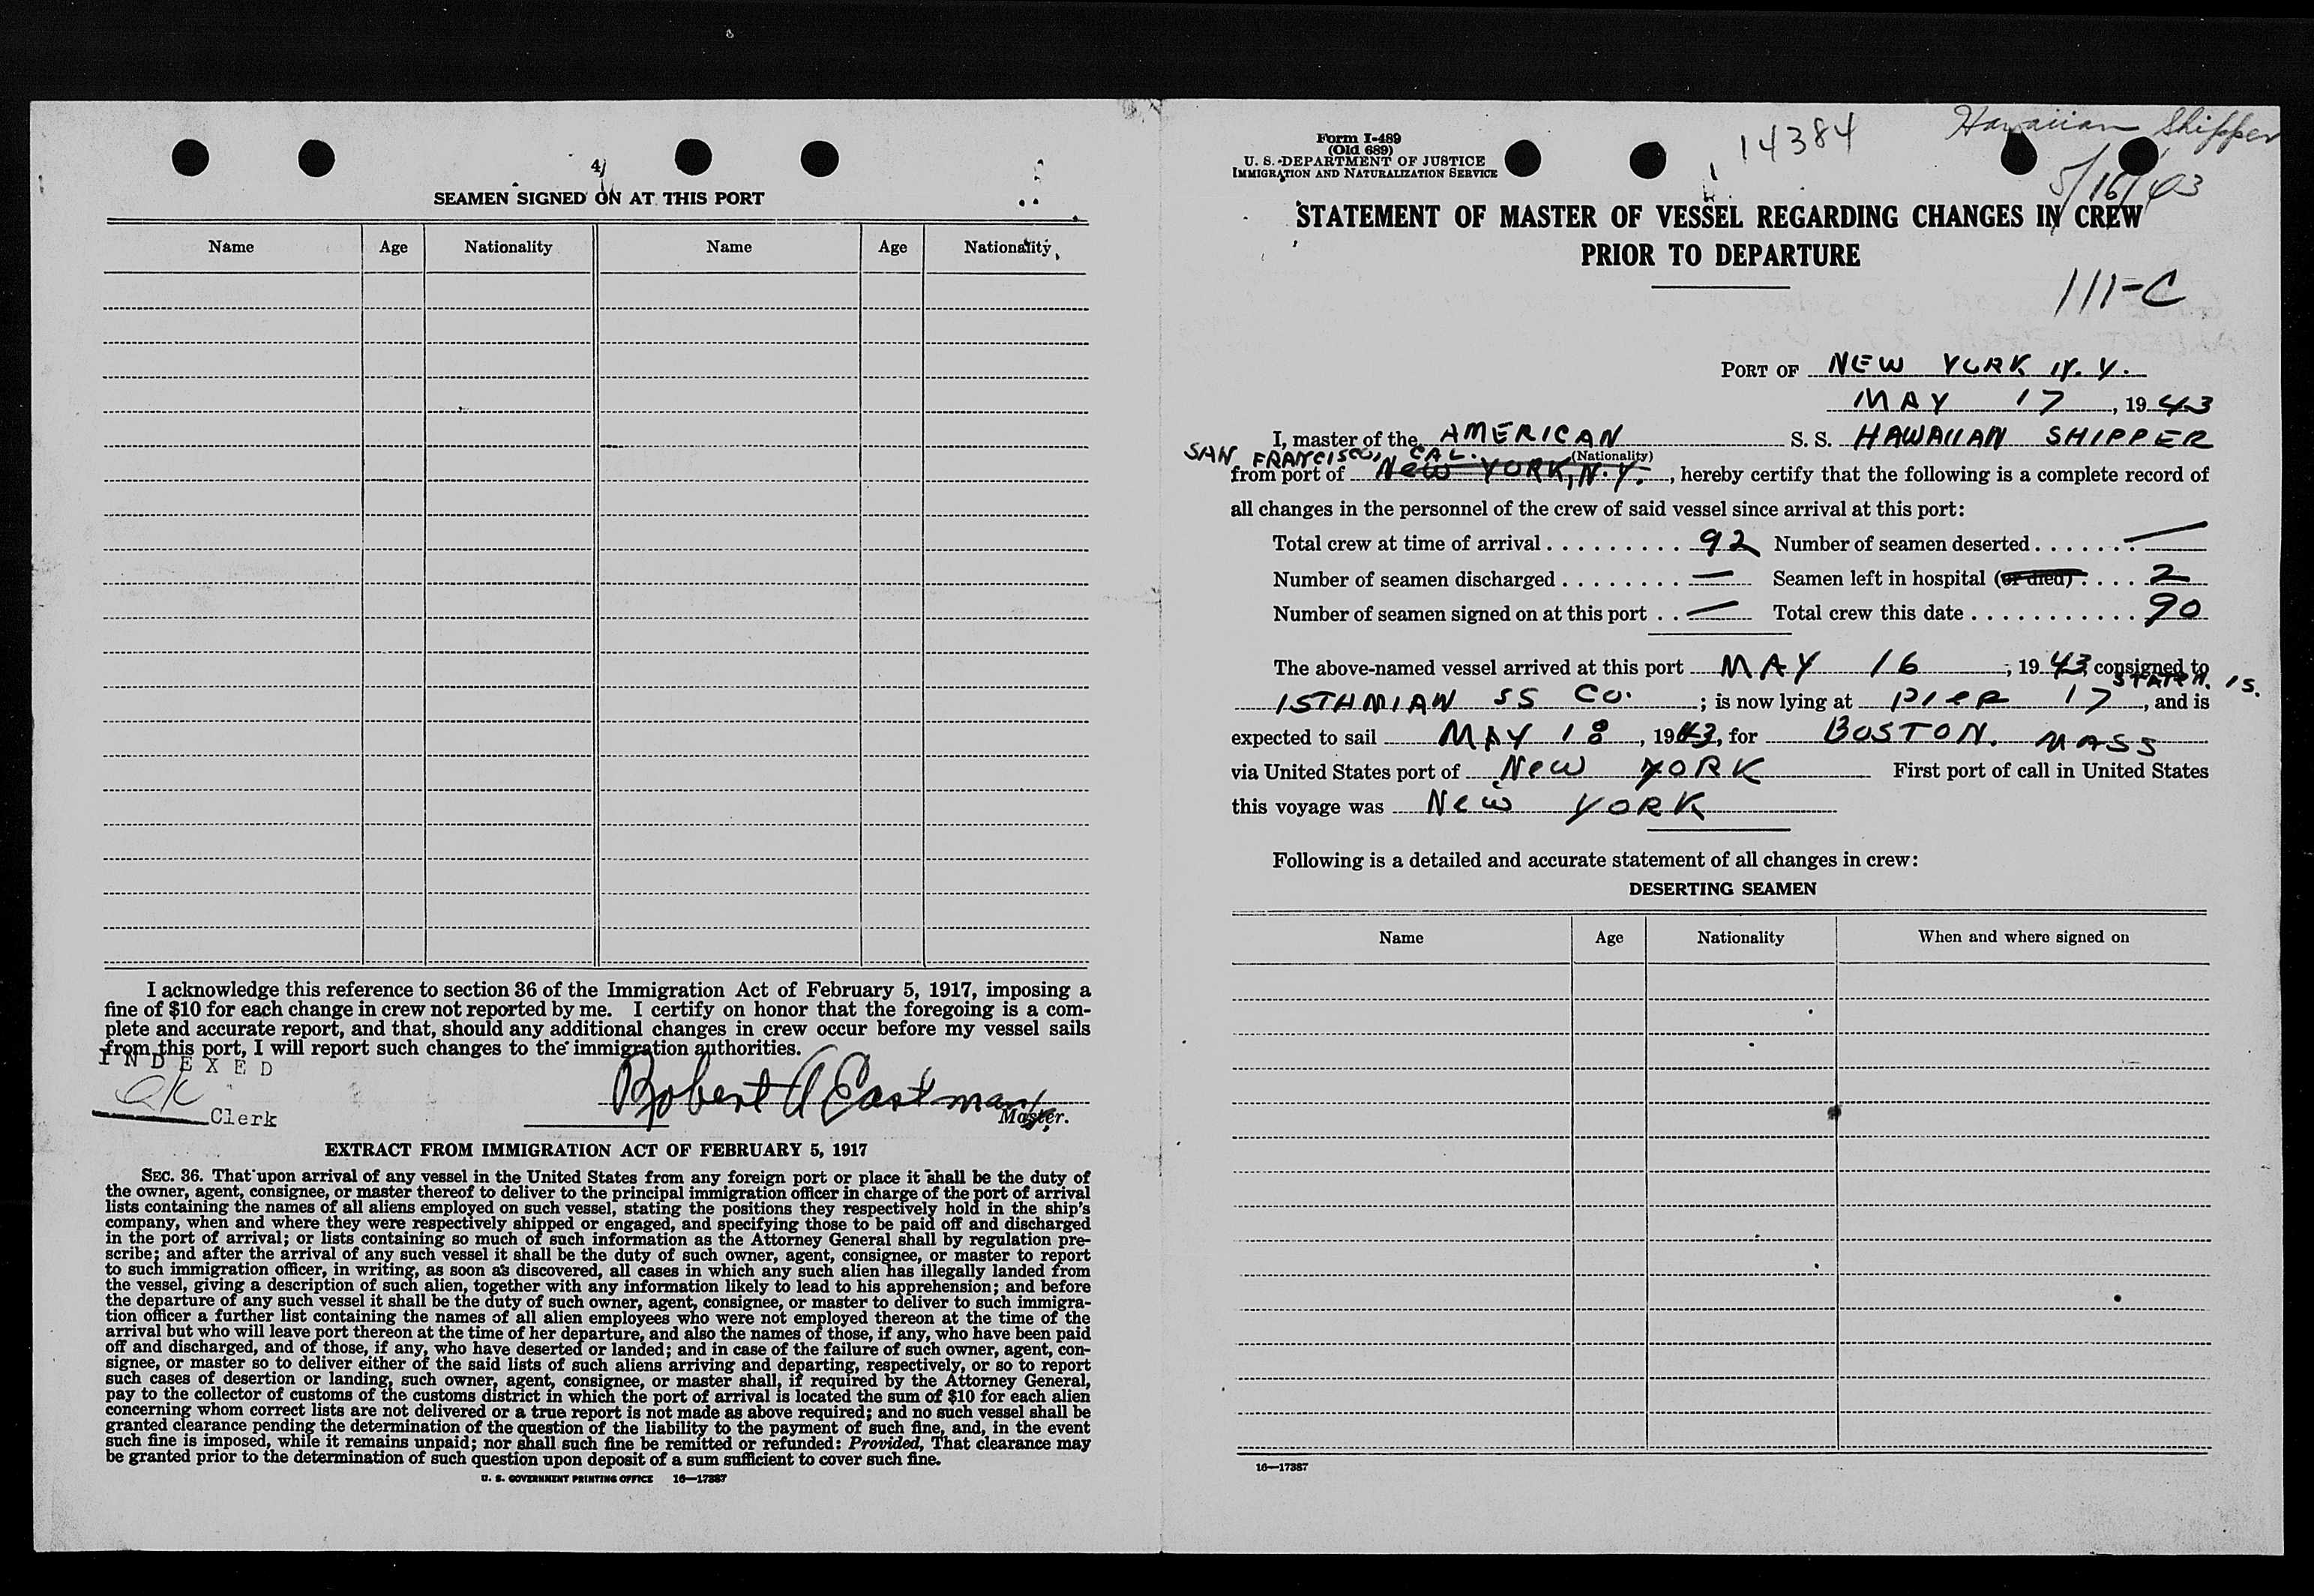 4)
SEAMEN SIGNED ON AT THIS PORT
Name Age Nationality Name Age Nationality
I acknowledge this reference to section 36 of the Immigration Act of February 5, 1917, imposing a
fine of $10 for each change in crew not reported by me. I certify on honor that the foregoing is a com-
plete and accurate report, and that, should any additional changes in crew occur before my vessel sails
from this port, I will report such changes to the immigration authorities.
INDEXED
Robert A Eastman
Clerk
Master.
EXTRACT FROM IMMIGRATION ACT OF FEBRUARY 5, 1917
SEC. 36. That upon arrival of any vessel in the United States from any foreign port or place it shall be the duty of
the owner, agent, consignee, or master thereof to deliver to the principal immigration officer in charge of the port of arrival
lists containing the names of all aliens employed on such vessel, stating the positions they respectively hold in the ship's
company, when and where they were respectively shipped or engaged, and specifying those to be paid off and discharged
in the port of arrival; or lists containing so much of such information as the Attorney General shall by regulation pre-
scribe; and after the arrival of any such vessel it shall be the duty of such owner, agent, consignee, or master to report
to such immigration officer, in writing, as soon as discovered, all cases in which any such alien has illegally landed from
the vessel, giving a description of such alien, together with any information likely to lead to his apprehension; and before
the departure of any such vessel it shall be the duty of such owner, agent, consignee, or master to deliver to such immigra-
tion officer a further list containing the names of all alien employees who were not employed thereon at the time of the
arrival but who will leave port thereon at the time of her departure, and also the names of those, if any, who have been paid
off and discharged, and of those, if any, who have deserted or landed; and in case of the failure of such owner, agent, con-
signee, or master so to deliver either of the said lists of such aliens arriving and departing, respectively, or so to report
such cases of desertion or landing, such owner, agent, consignee, or master shall, if required by the Attorney General,
pay to the collector of customs of the customs district in which the port of arrival is located the sum of $10 for each alien
concerning whom correct lists are not delivered or a true report is not made as above required; and no such vessel shall be
granted clearance pending the determination of the question of the liability to the payment of such fine, and, in the event
such fine is imposed, while it remains unpaid; nor shall such fine be remitted or refunded: Provided, That clearance may
be granted prior to the determination of such question upon deposit of a sum sufficient to cover such fine.
U. S. GOVERNMENT PRINTING OFFICE 16—17387
Form I-489
(Old 689)
U. S. DEPARTMENT OF JUSTICE
IMMIGRATION AND NATURALIZATION SERVICE
14384
Hawaiian Shipper
5/16/43
STATEMENT OF MASTER OF VESSEL REGARDING CHANGES IN CREW
PRIOR TO DEPARTURE
111-C
PORT OF NEW YORK N.Y.
MAY 17, 1943
I, master of the AMERICAN S. S. HAWAIIAN SHIPPER
(Nationality)
SAN FRANCISCO, CAL.
from port of New YORK, N.Y., hereby certify that the following is a complete record of
all changes in the personnel of the crew of said vessel since arrival at this port:
Total crew at time of arrival 92 Number of seamen deserted —
Number of seamen discharged — Seamen left in hospital (or died) 2
Number of seamen signed on at this port — Total crew this date 90
The above-named vessel arrived at this port MAY 16, 1943 consigned to
STATEN. IS.
ISTHMIAN SS CO.; is now lying at pier 17, and is
expected to sail MAY 18, 1943, for BOSTON. MASS
via United States port of New YORK First port of call in United States
this voyage was New YORK
Following is a detailed and accurate statement of all changes in crew:
DESERTING SEAMEN
Name Age Nationality When and where signed on
16—17387